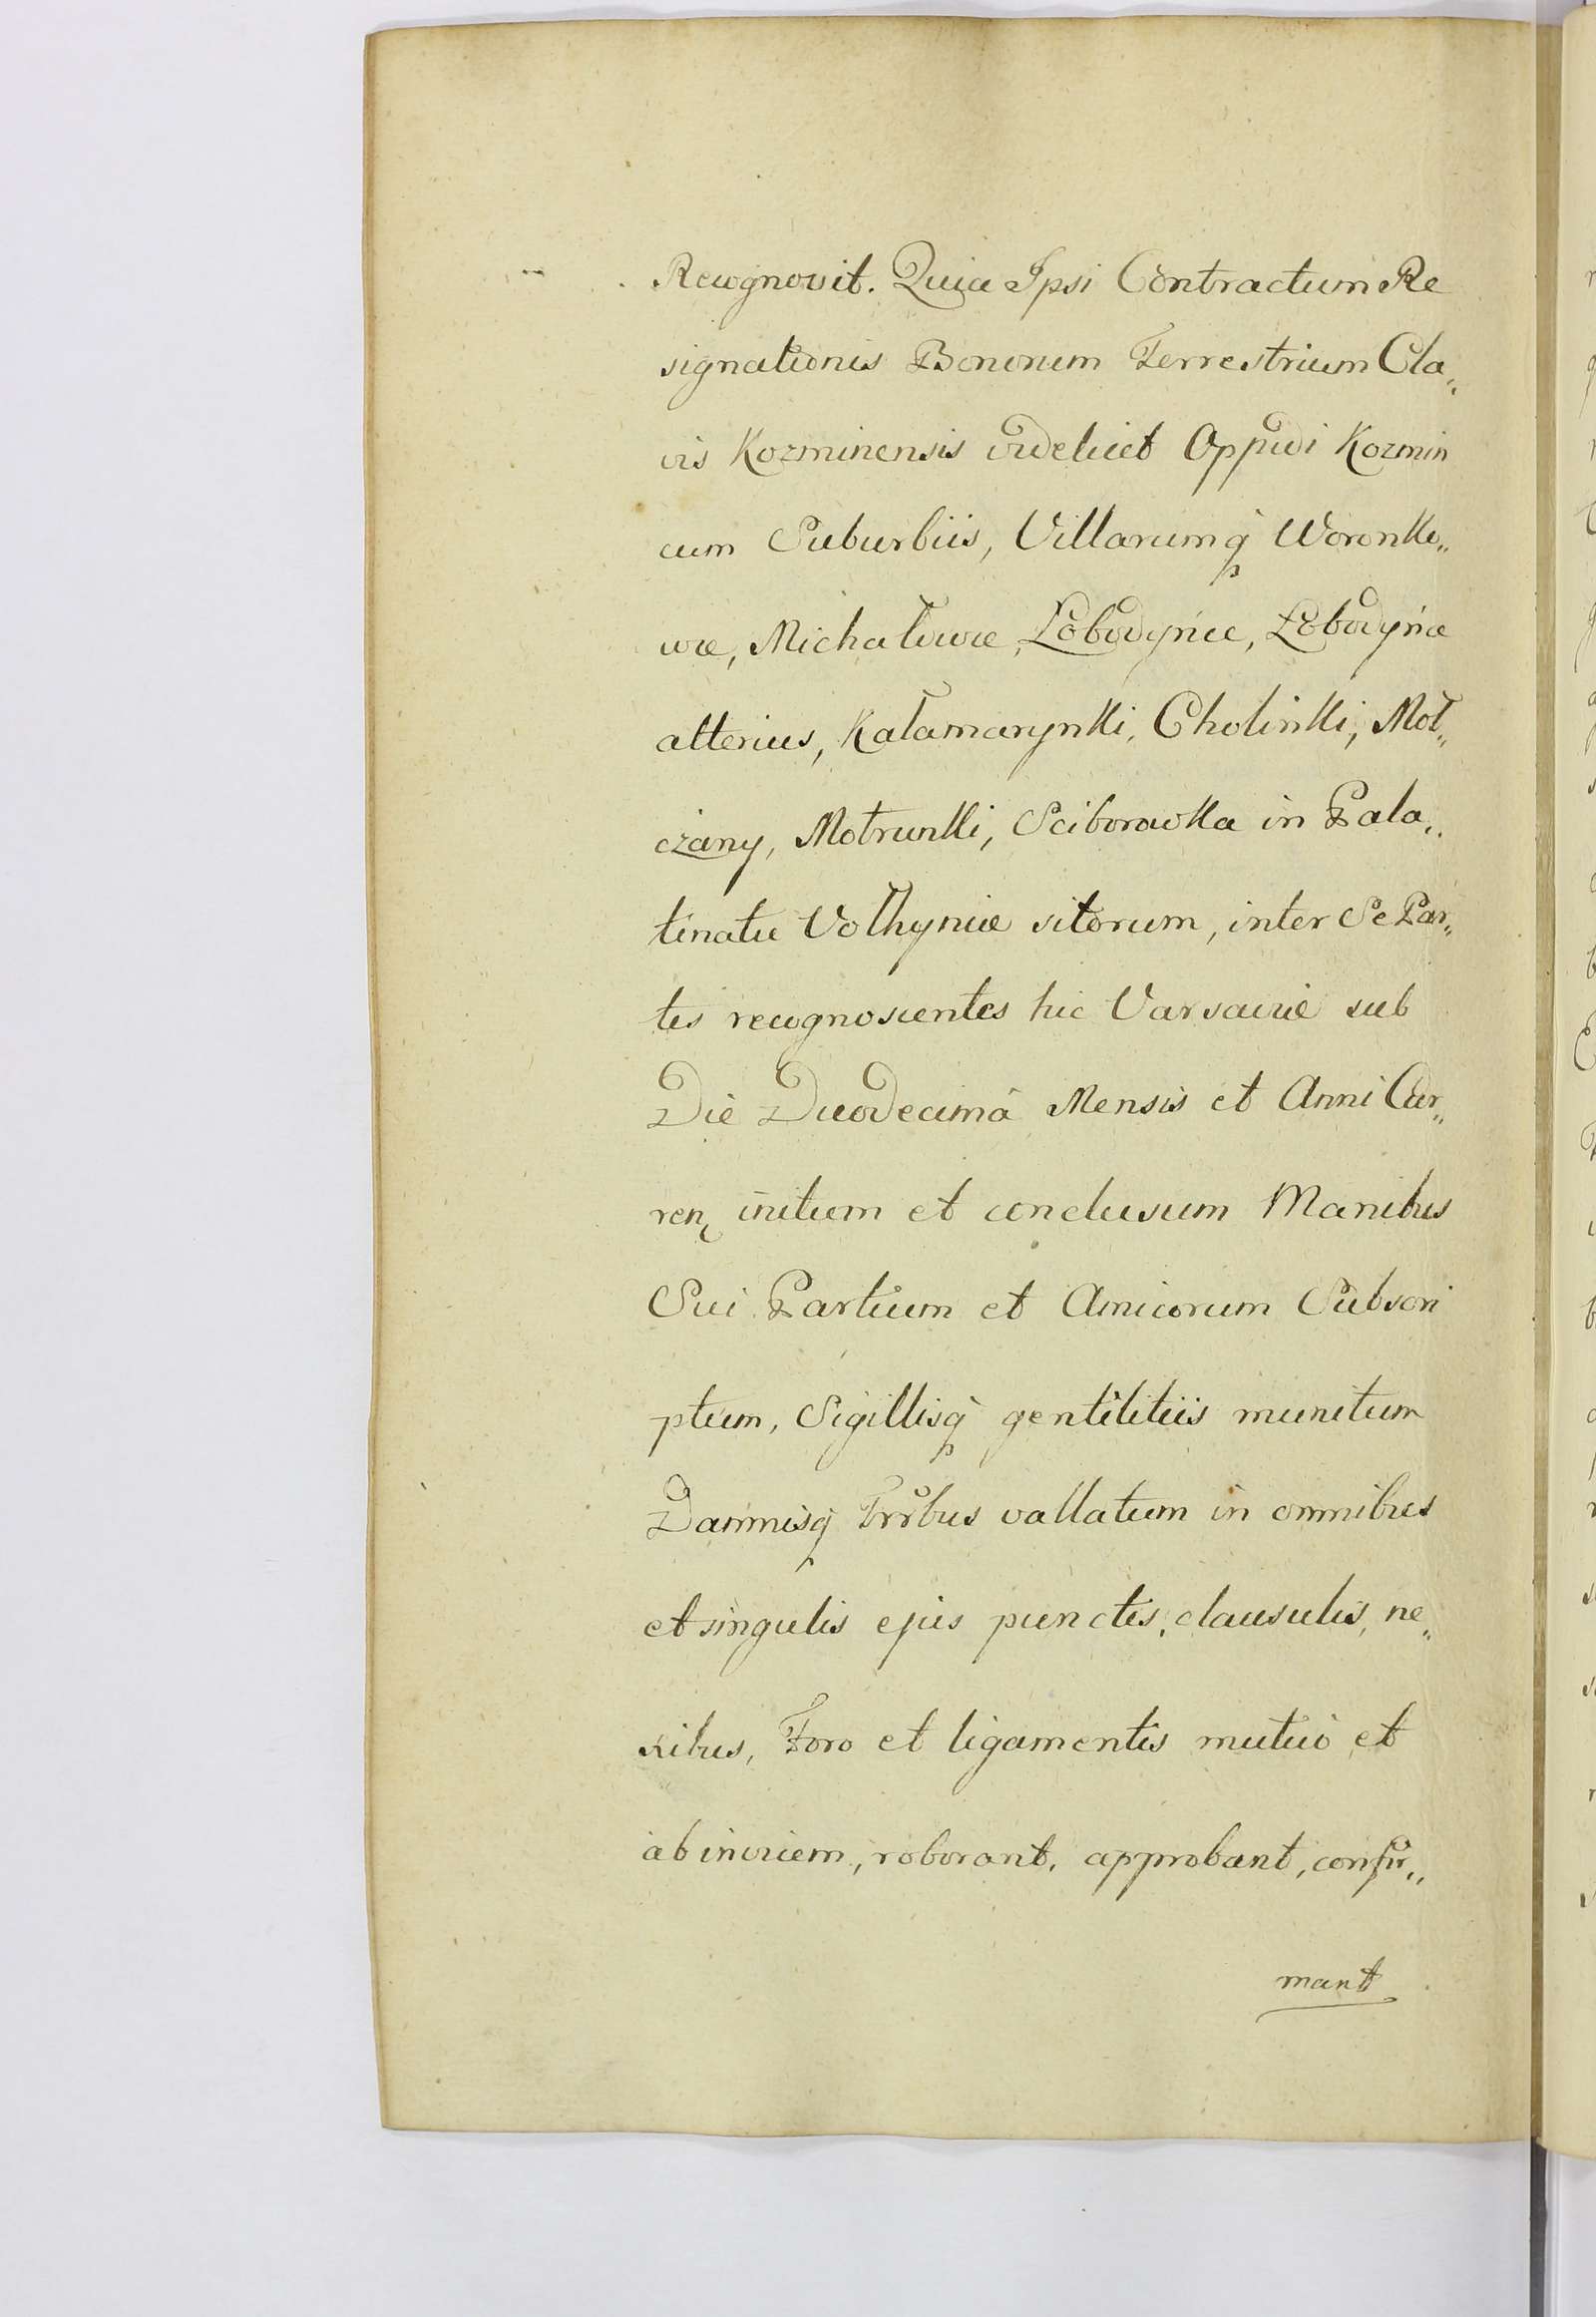 Recognovit. Quia Ipsi Contractum Re
signationis Bonorum Terrestrium Cla„
vis Kozminensis videlicet Oppidi Kozmin
cum Suburbiis, Villarumq Woronko„
wce, Michałowce, Łobodynce, Łobodynce
alterius, Kałamarynki, Cholinki, Moł„
czany, Motrunki, Sciborowka in Pala„
tinatu Volhyniæ sitorum, inter Se Par„
tes recognoscentes hic Varsaviæ sub
Die Duodecimâ Mensis et Anni Cur„
ren initum et conclusum Manibus
Sui Partium et Amicorum Subscri
ptum, Sigillisq gentilitiis munitum
Damnisq Trrbus vallatum in omnibus
et singulis ejus punctis, clausulis, ne„
xibus, Foro et ligamentis mutuò et
ab invicem, roborant, approbant, confir„
mant